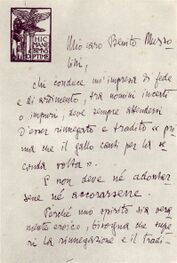 HIC
MANEBIMVS
OPTIME
Mio caro Benito Musso
lini,
chi conduce un'impresa di fede
e di ardimento, tra uomini incerti
o impuri, deve sempre attendersi
d'esser rinnegato e tradito « pri
ma che il gallo canti per la se
conda volta ».
E non deve né adontar
sene né accorarsene.
Perché uno spirito sia vera
mente eroico, bisogna che supe
ri la rinnegazione e il tradi-